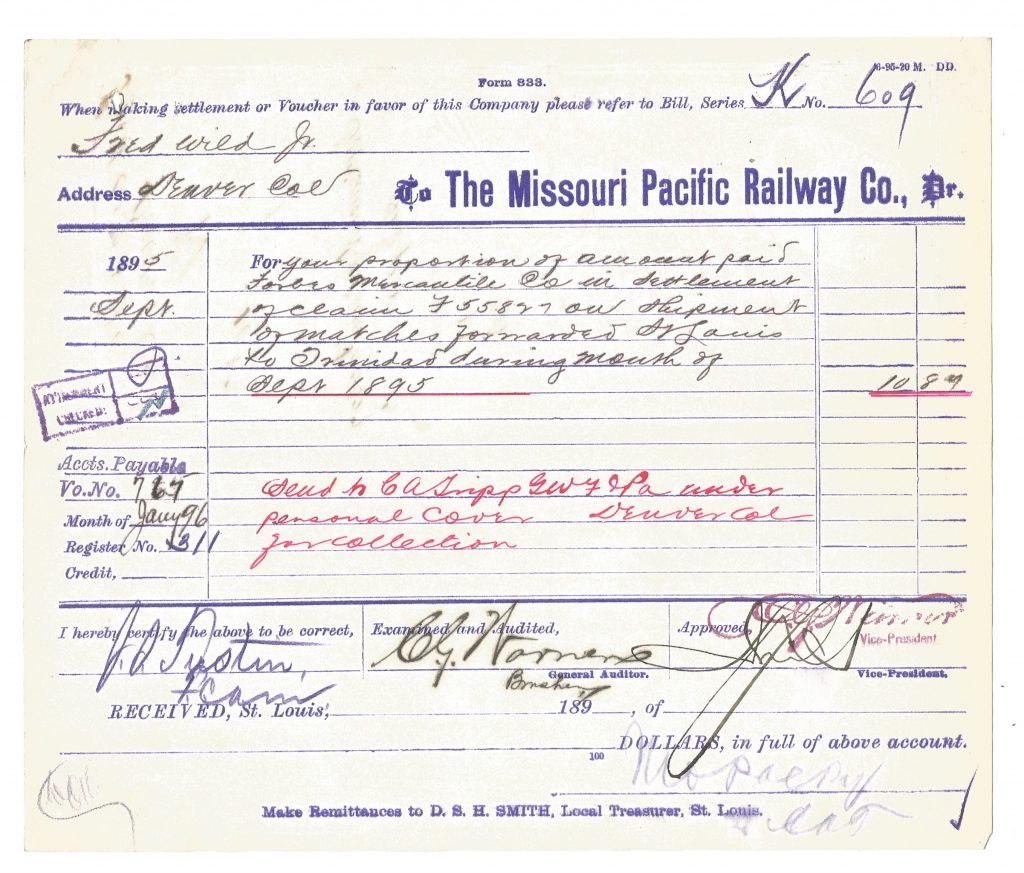 6-95-20 M. DD.
Form 833.
When making settlement or Voucher in favor of this Company please refer to Bill, Series K No. 609
Fred Wild Jr.
Address Denver Col
To The Missouri Pacific Railway Co., Dr.
1895 For your proportion of amount paid
Forbes Mercantile Co in Settlement
Sept. of claim F55827 on Shipment
of matches forwarded St Louis
to Trinidad during month of
Sept 1895 10 87
ATTACHMENT
CHECKED:
Accts. Payable
Vo. No. 765 Send to C A Tripp under
Month of Jany 96 personal cover Denver Col
Register No. 311 for collection
Credit,
I hereby certify the above to be correct, Examined and Audited, Approved,
J.A. Tustin, C.G. Warner
Vice-President
General Auditor. Vice-President.
RECEIVED, St. Louis, 189 , of
100 DOLLARS, in full of above account.
Mo Pac Ry
Make Remittances to D. S. H. SMITH, Local Treasurer, St. Louis.